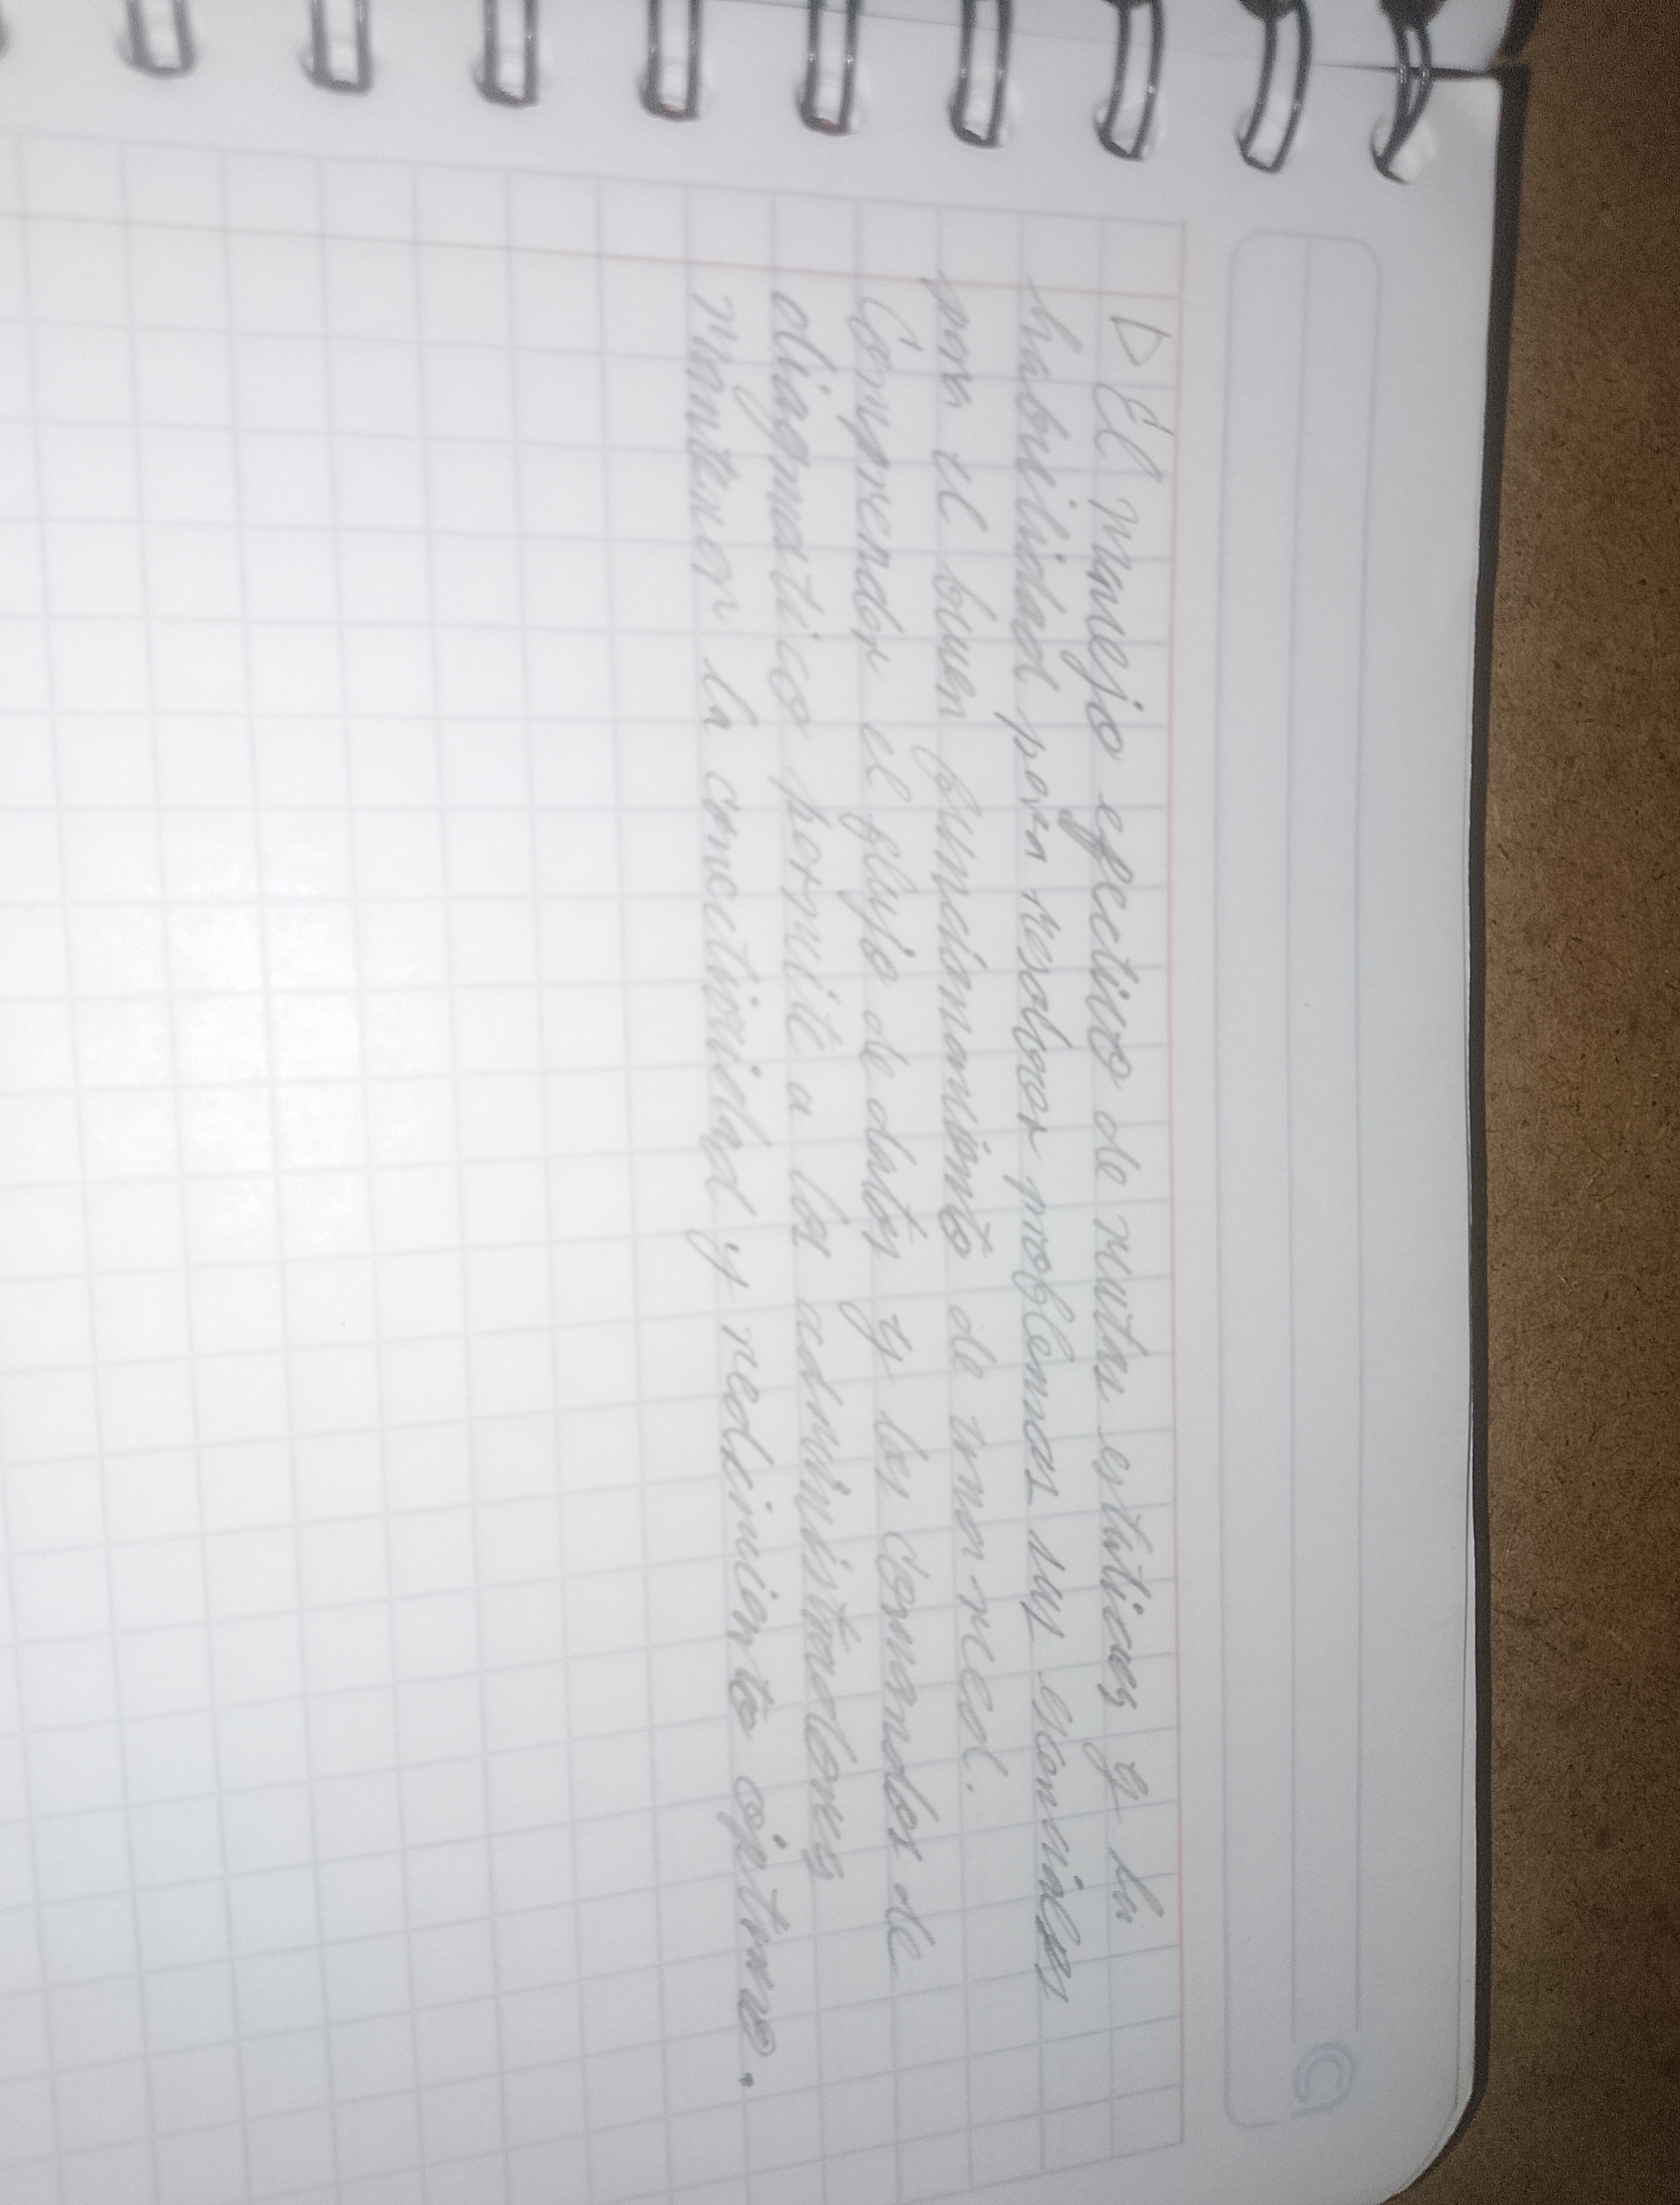 ▷ El manejo efectivo de rutas estaticas y la
habilidad para resolver problemas sus escenciales
para el buen funcionamiento de una red.
Comprender el flujo de datos y los comandos de
diagnostico permite a los administradores
mantener la conectividad y redimiento optimo.